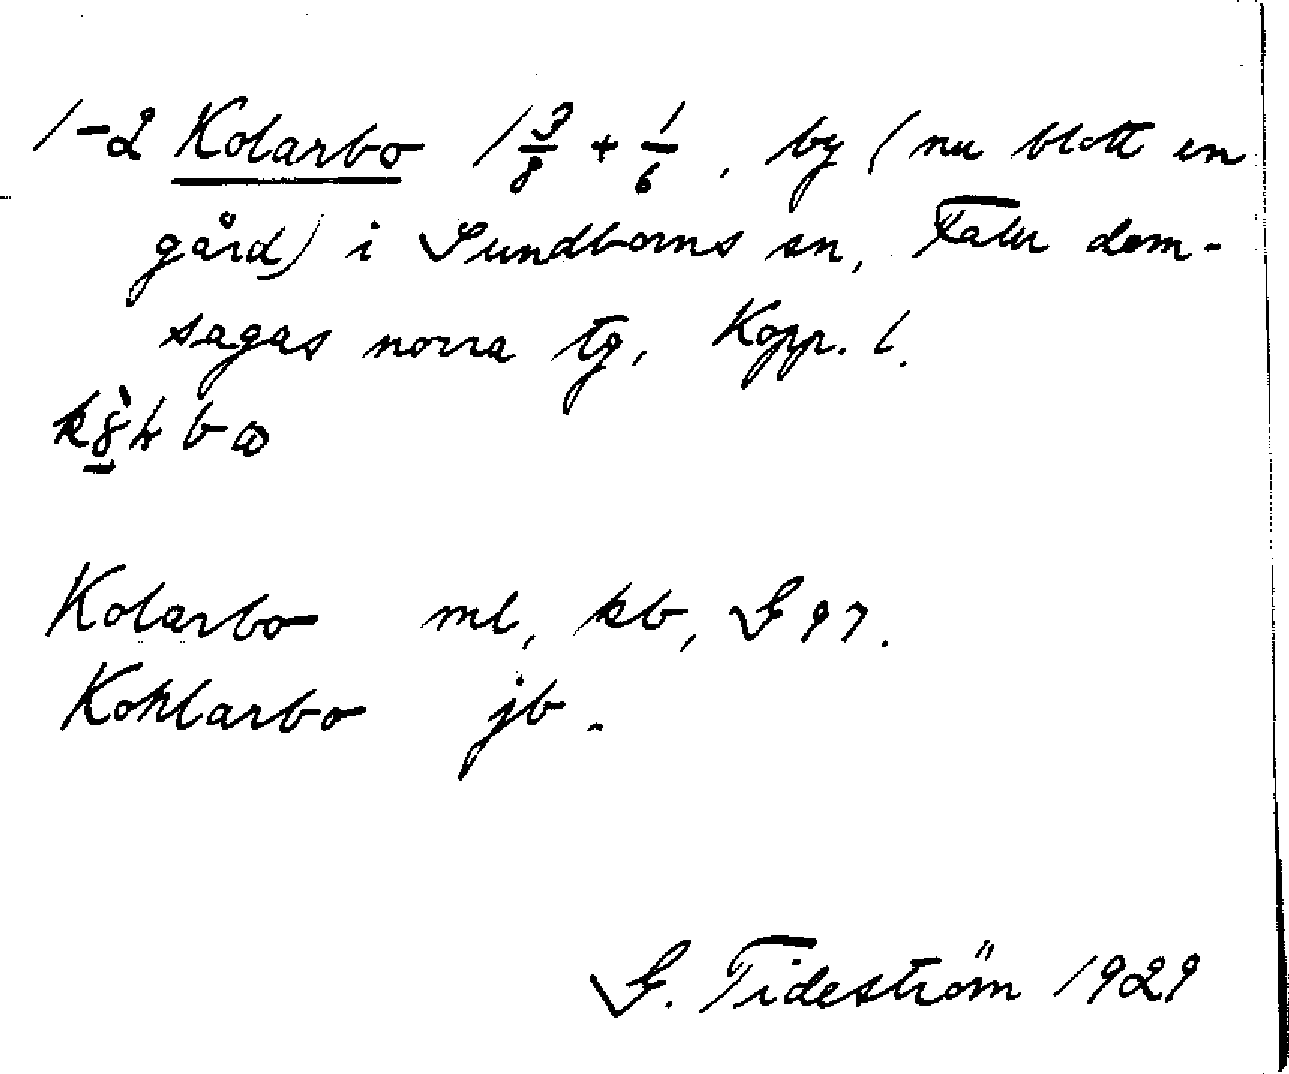 1-2 Kolarbo 1 3/8 + 1/6, by (nu blott en
gård) i Sundborns sn, Falu dom-
sagas norra tg, Kopp. l.
Kolarbo ml, kb, G 97.
Kohlarbo jb.
G. Tideström 1929